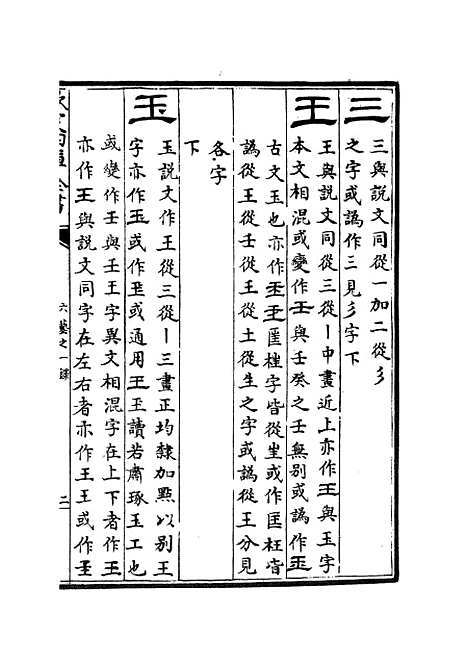 三
三與說文同從一加二從彡
之字或譌作三見彡字下
王
王與說文同從三從丨中畫近上亦作王與玉字
本文相混或變作王與壬癸之壬無別或譌作玉
古文玉也亦作𤣩王匩𣏹字皆從㞷或作匡枉皆
譌從王從壬從王從土從生之字或譌從王分見
各字
下
玉
玉說文作王從三從丨三畫正均隸加點以别王
字亦作玉或作𤣩或通用王玉讀若肅琢玉工也
或變作壬與壬王字異文相混字在上下者作王
亦作王與說文同字在左右者亦作王王或作𤣩
六藝之一錄
二